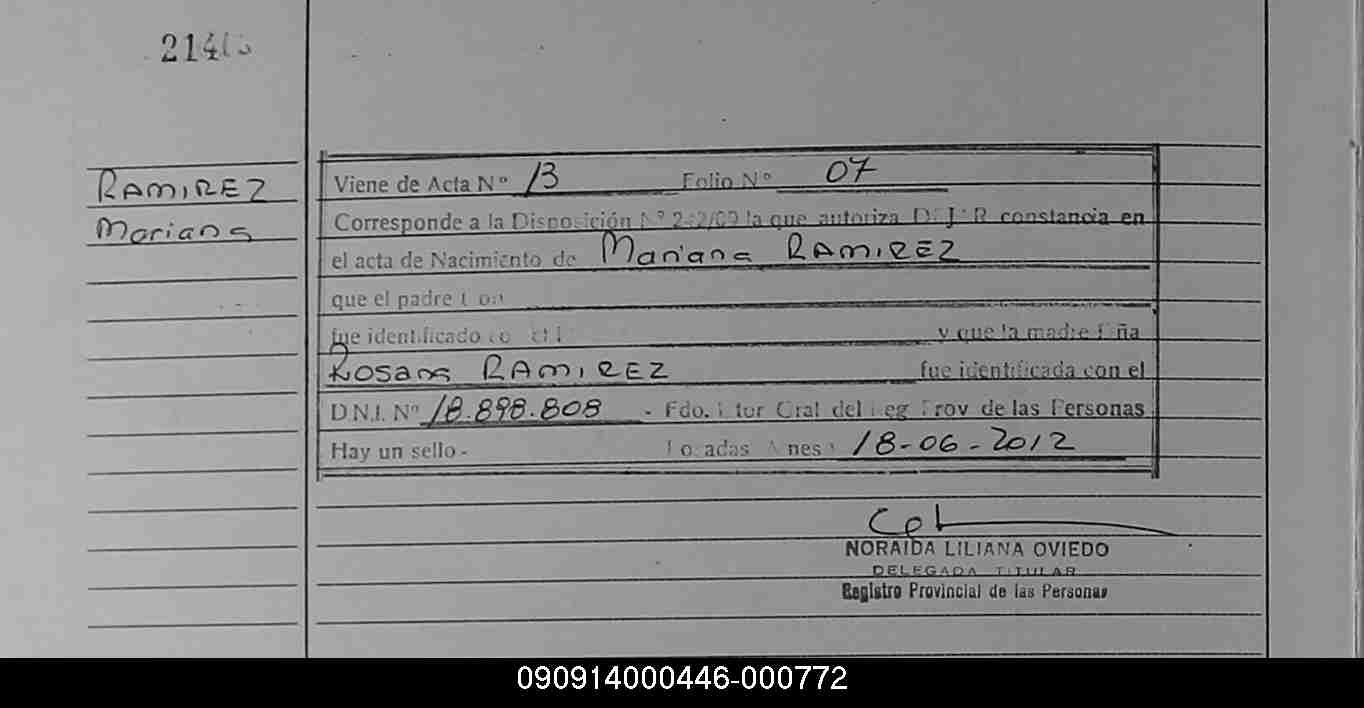 RAMIREZ
Mariana
Viene de Acta Nº 13 Folio Nº 07
Corresponde a la Disposición Nº 242/09 la que autoriza DEJAR constancia en
el acta de Nacimiento de Mariana RAMIREZ
que el padre Don
fue identificado y que la madre Doña
Rosana RAMIREZ fue identificada con el
D.N.I. Nº 18.898.808 - Fdo. Dtor Gral del Reg Prov de las Personas
Hay un sello.- Posadas Mnes 18-06-2012
NORAIDA LILIANA OVIEDO
DELEGADA TITULAR
Registro Provincial de las Personas
090914000446-000772